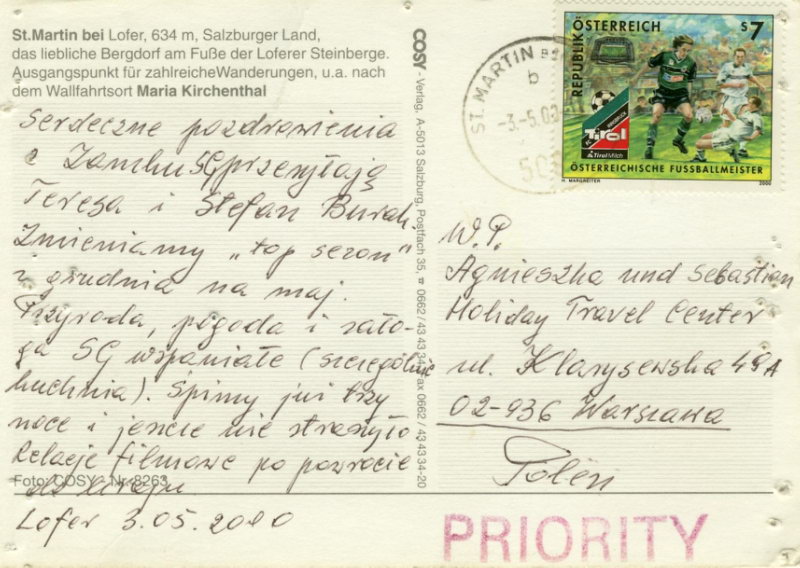 St.Martin bei Lofer, 634 m, Salzburger Land,
das liebliche Bergdorf am Fuße der Loferer Steinberge.
Ausgangspunkt für zahlreicheWanderungen, u.a. nach
dem Wallfahrtsort Maria Kirchenthal
Serdeczne pozdrowienia
z Zamku SG przesyłają
Teresa i Stefan Burak.
Zmieniamy „top sezon"
z grudnia na maj.
Przyroda, pogoda i zało-
ga SG wspaniałe (szczególnie
kuchnia). Śpimy już trzy
noce i jeszcze nie straszyło
Relacje filmowe po powrocie
do kraju
Foto: COSY - Nr. 8263
Lofer 3.05.2000
COSY - Verlag, A-5013 Salzburg, Postfach 35, ☎ 0662 / 43 43 34, Fax 0662 / 43 43 34-20
ST. MARTIN BEI
b
-3.-5.00
509
REPUBLIK ÖSTERREICH
S 7
FC
Tirol
TirolMilch
ÖSTERREICHISCHE FUSSBALLMEISTER
H. MARGREITER
2000
W.P.
Agnieszka und Sebastian
Holiday Travel Center
ul. Klarysewska 49A
02-936 Warszawa
Polen
PRIORITY